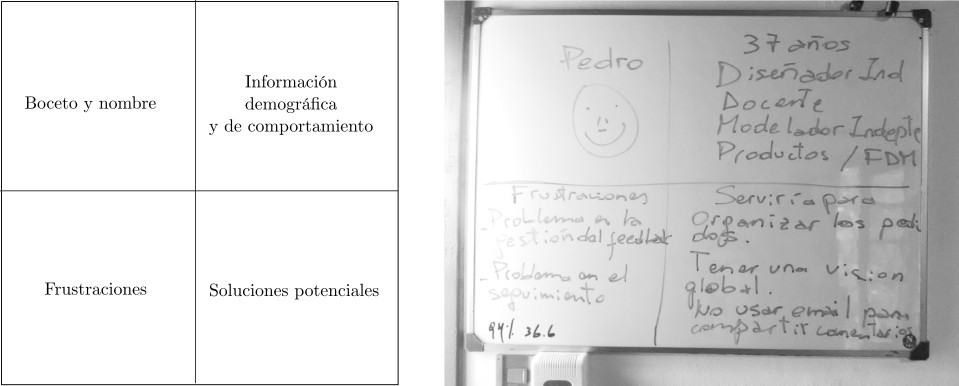 Boceto y nombre
Información
demográfica
y de comportamiento
Frustraciones
Soluciones potenciales
Pedro
37 años
Diseñador Ind
Docente
Modelador Indepte
Productos / FDM
Frustraciones
- Problema en la
gestión del feedbak
- Problema en el
seguimiento
94% 36.6
Serviría para
Organizar los pedi
dos.
Tener una vision
global.
No usar email para
compartir comentarios